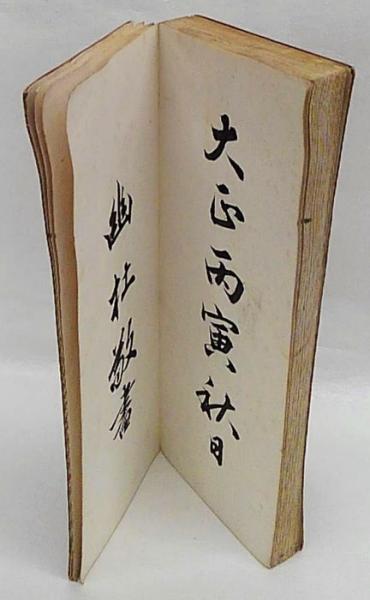 大正丙寅秋日
幽杜敬書